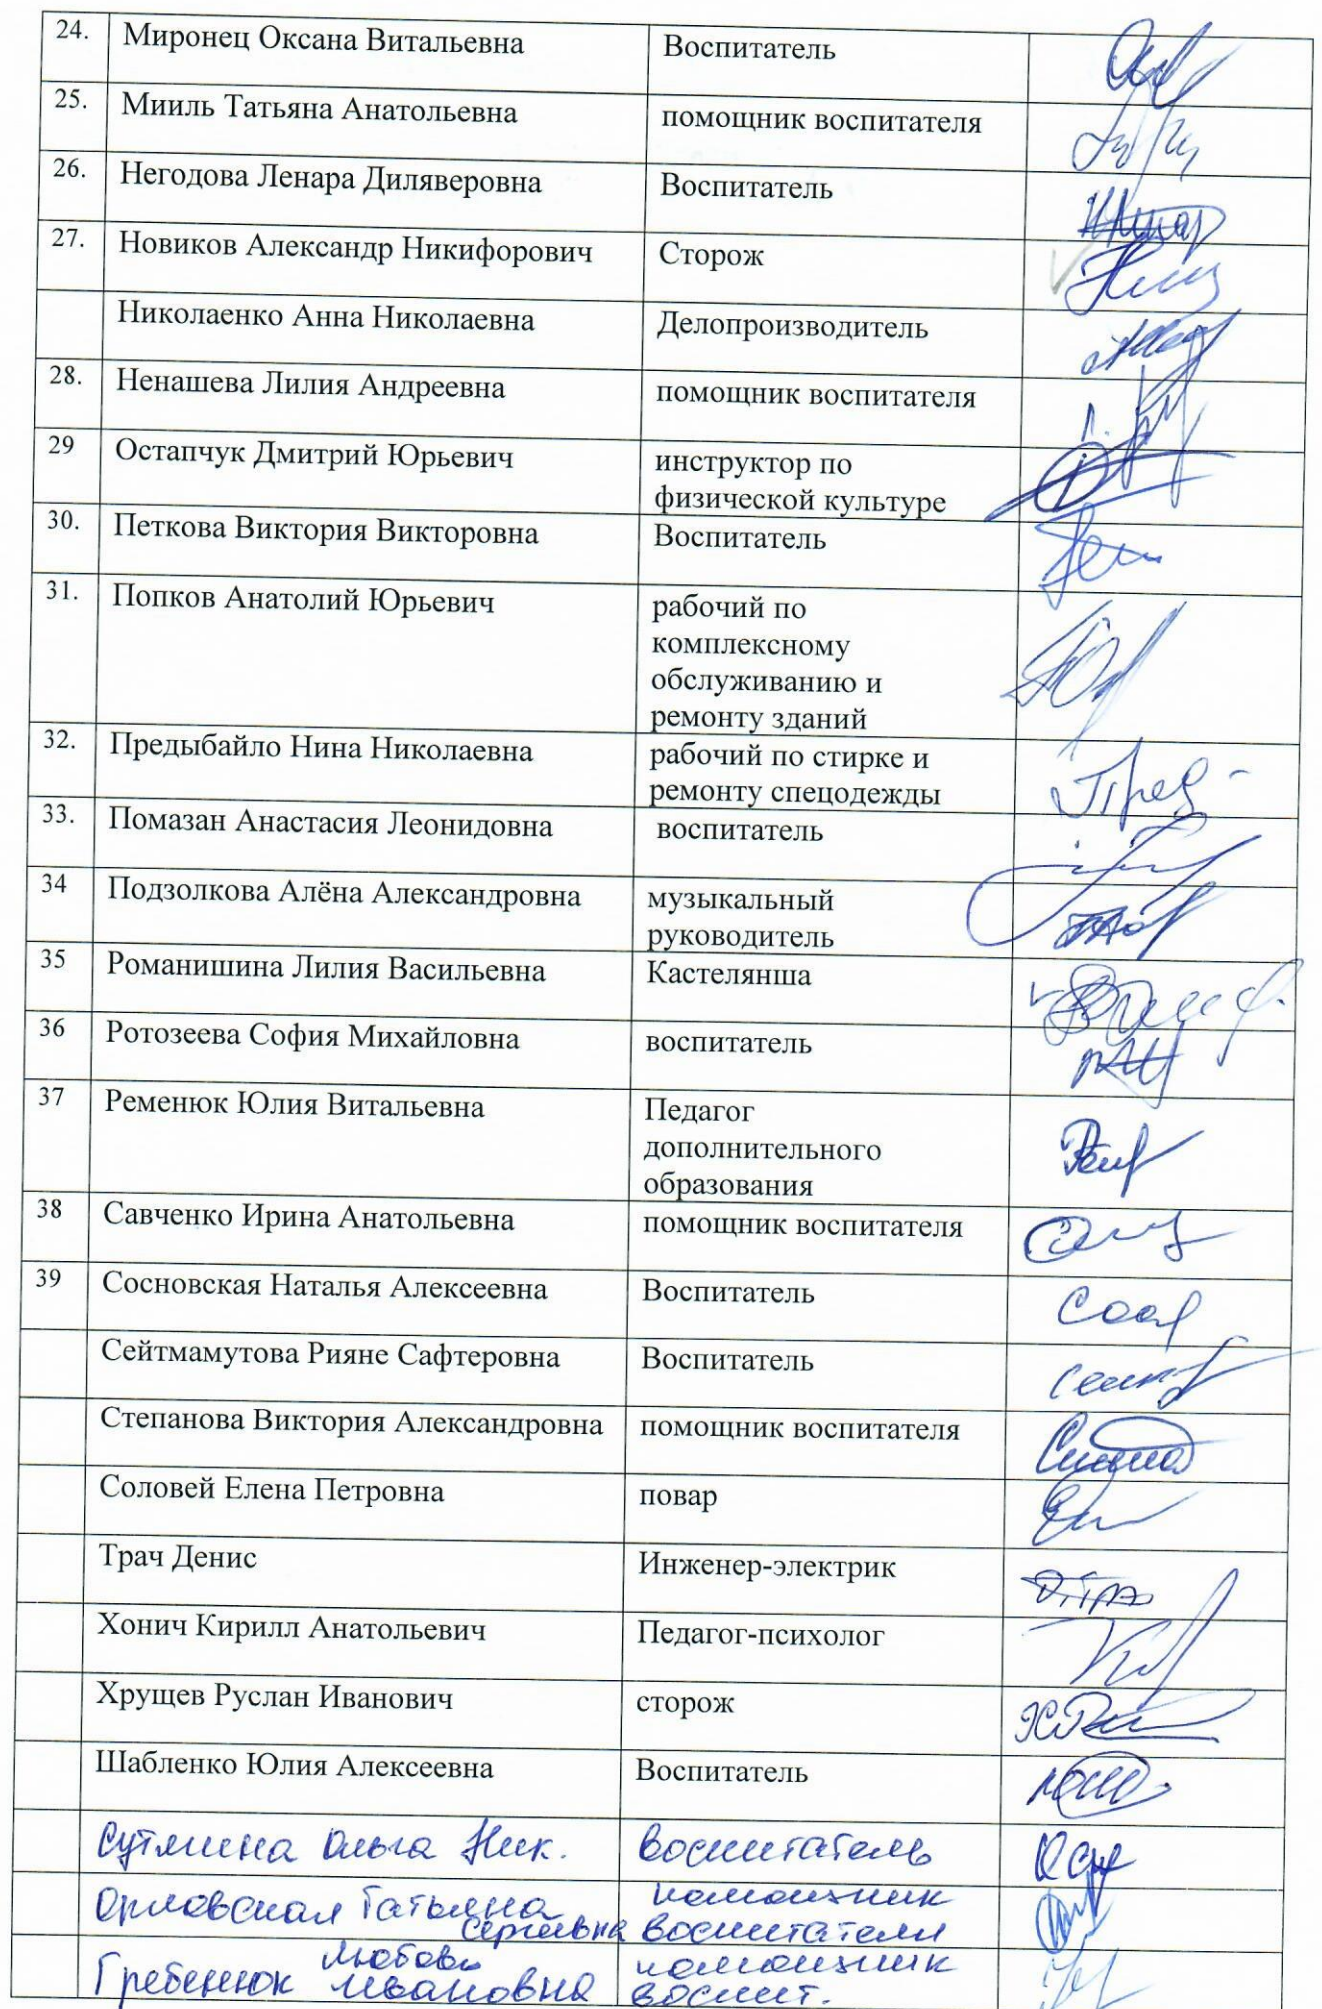 24. Миронец Оксана Витальевна Воспитатель
25. Мииль Татьяна Анатольевна помощник воспитателя
26. Негодова Ленара Диляверовна Воспитатель
27. Новиков Александр Никифорович Сторож
Николаенко Анна Николаевна Делопроизводитель
28. Ненашева Лилия Андреевна помощник воспитателя
29 Остапчук Дмитрий Юрьевич инструктор по
физической культуре
30. Петкова Виктория Викторовна Воспитатель
31. Попков Анатолий Юрьевич рабочий по
комплексному
обслуживанию и
ремонту зданий
32. Предыбайло Нина Николаевна рабочий по стирке и
ремонту спецодежды
33. Помазан Анастасия Леонидовна воспитатель
34 Подзолкова Алёна Александровна музыкальный
руководитель
35 Романишина Лилия Васильевна Кастелянша
36 Ротозеева София Михайловна воспитатель
37 Ременюк Юлия Витальевна Педагог
дополнительного
образования
38 Савченко Ирина Анатольевна помощник воспитателя
39 Сосновская Наталья Алексеевна Воспитатель
Сейтмамутова Рияне Сафтеровна Воспитатель
Степанова Виктория Александровна помощник воспитателя
Соловей Елена Петровна повар
Трач Денис Инженер-электрик
Хонич Кирилл Анатольевич Педагог-психолог
Хрущев Руслан Иванович сторож
Шабленко Юлия Алексеевна Воспитатель
Ольга Ник. воспитатель
Орловская Татьяна помощник
Сергеевна воспитателя
Любовь помощник
Гребенюк Ивановна воспит.